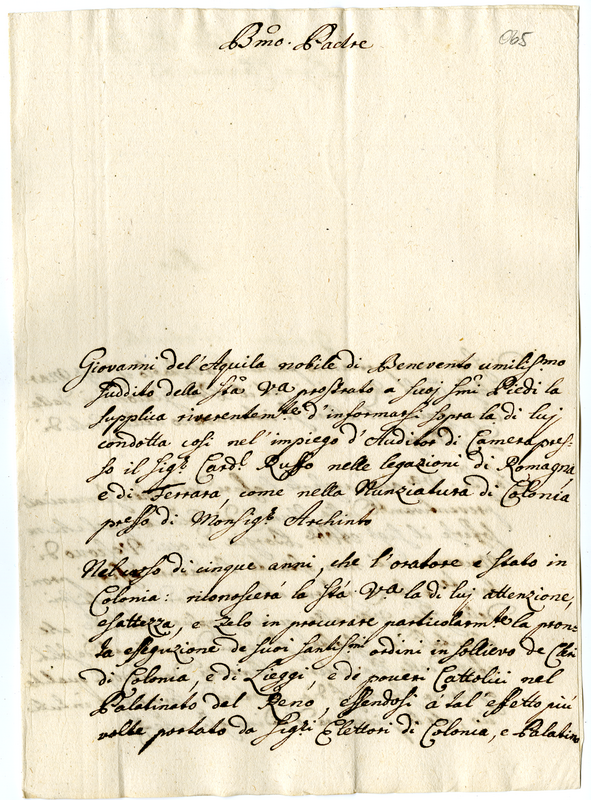 Bmo. Padre
065
Giovanni del'Aquila nobile di Benevento umilissmo
suddito della Stà Va prostrato a suoj Smi Piedi la
supplica riverentemte d'informarsi sopra la di luj
condotta così nel'impiego d'Auditor di Camera pres-
so il Sigr Cardl Ruffo nelle legazioni di Romagna
e di Ferrara, come nella Nunziatura di Colonia
presso di Monsigr Archinto
Nel corso di cinque anni, che l'oratore è stato in
Colonia: riconoscerà la Stà Va la di luj attenzione,
esattezza, e zelo in procurare particolarmte la pron-
ta essequzione de suoi santissmi ordini in sollievo de Cleri
di Colonia, e di Lieggi, e de poveri Cattolici nel
Palatinato del Reno, essendosi a tal'effetto più
volte portato da Sigri Elettori di Colonia, e Palatino